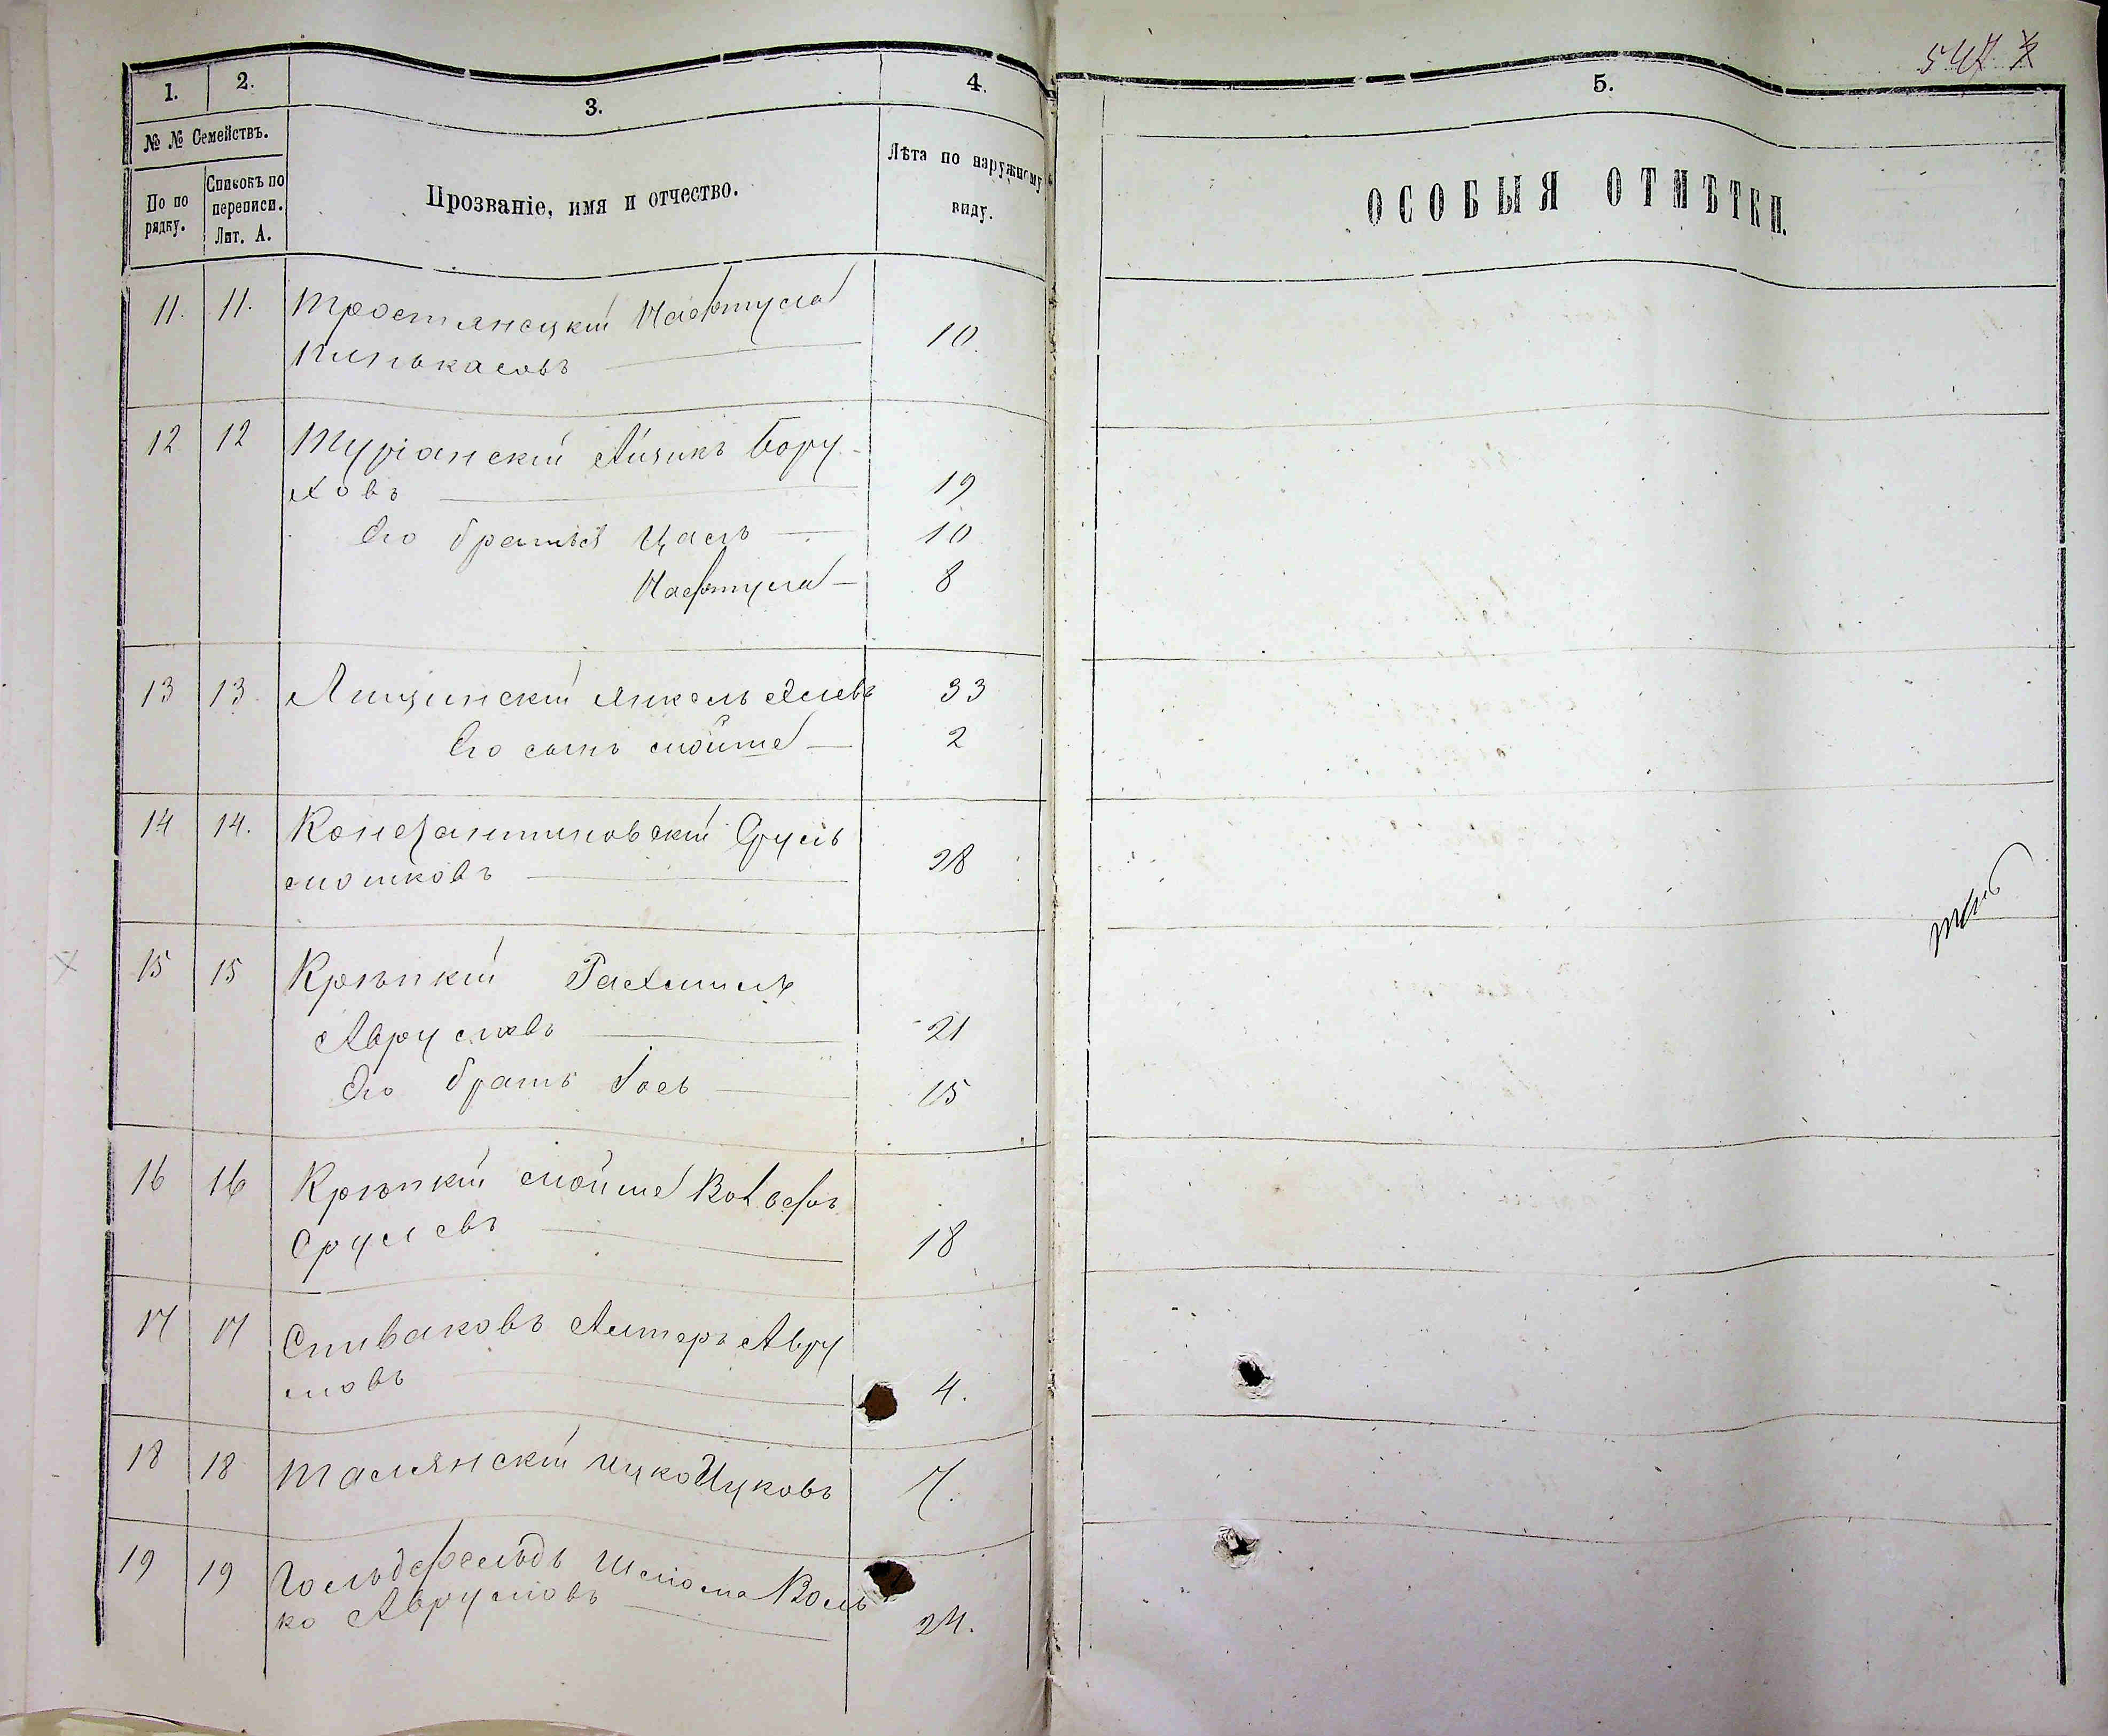 547
1.
2.
3.
4.
5.
№ № Семействъ.
По по
рядку.
Списокъ по
переписи.
Лит. А.
Прозваніе, имя и отчество.
Лѣта по наружному
виду.
ОСОБЫЯ ОТМѢТКИ.
11. 11. Тростянецкій Нафтула
Пинькасовъ 10.
12 12 Туріанскій Айзикъ Бору
ховъ 19
Его братья 10
Нафтула 8
13 13. Янкель 33
Его сынъ Мойше 2
14 14. Константиновскій Сруль
Мошковъ 28
15 15 Крѣпкій Рахмиль
Аврумовъ 21
Его братъ Іось 15
16 16 Крѣпкій Мойше Вольфъ
Срулевъ 18
17 17 Спиваковъ Алтеръ Авру
мовъ 4.
18 18 Талянскій Ицко Ицковъ 7.
19 19 Гольдфельдъ Шлома Воль
ко Аврумовъ 24.